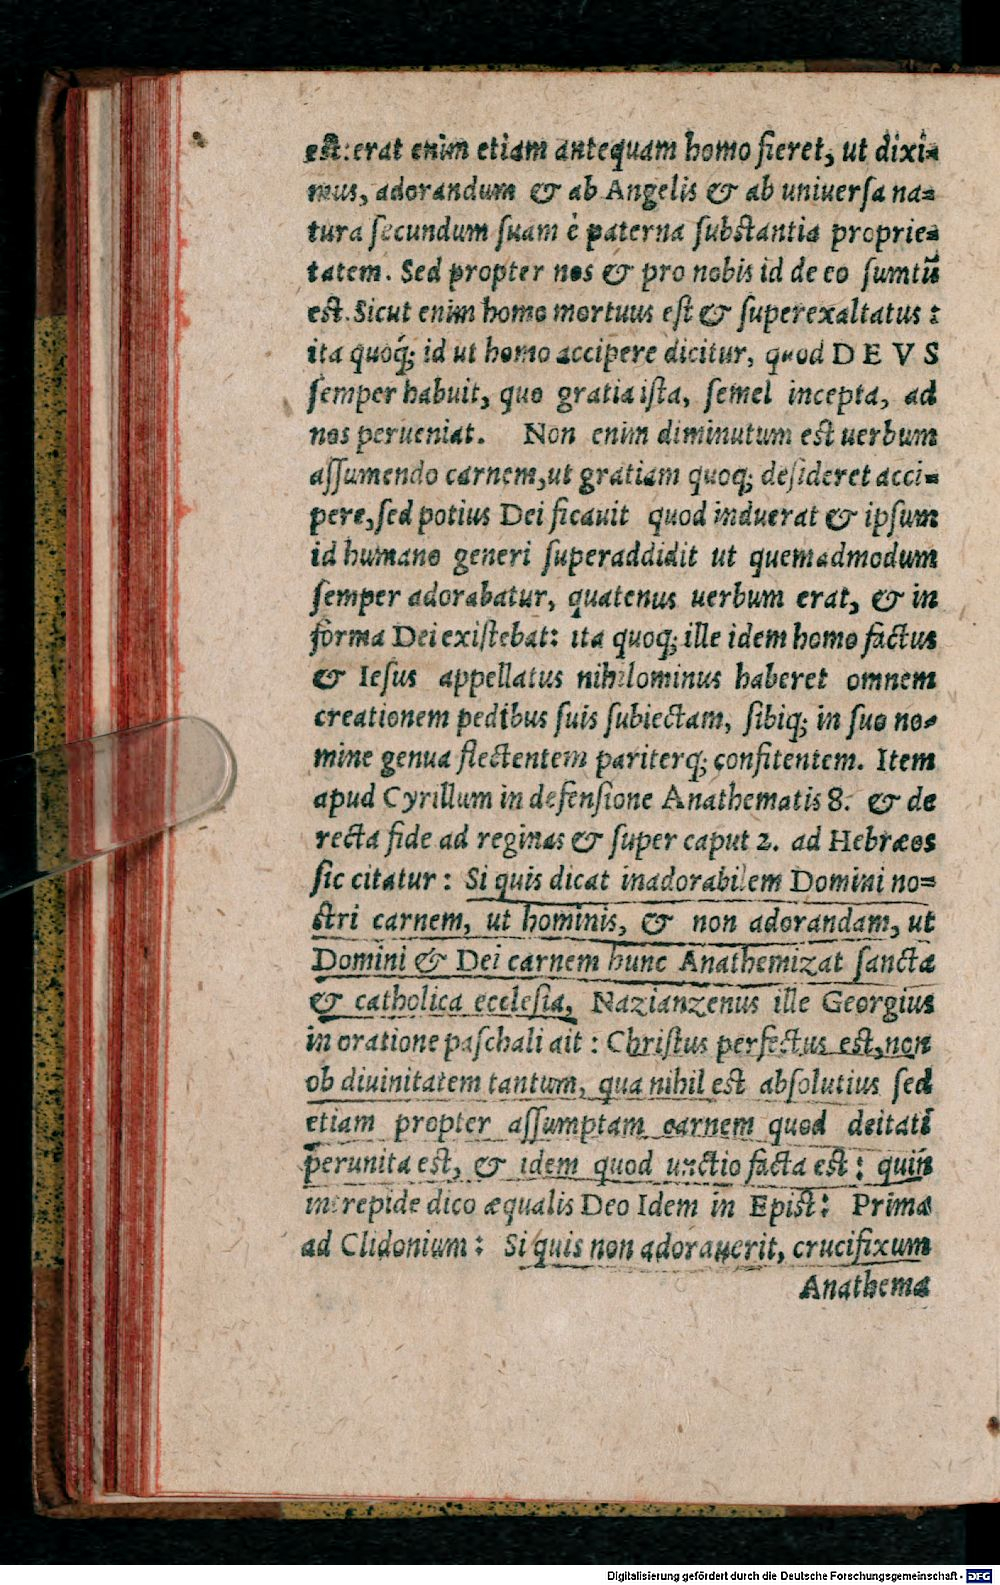 est: erat enim etiam antequam homo fieret, ut dixi=
mus, adorandum & ab Angelis & ab uniuersa na=
tura secundum suam è paterna substantia proprie=
tatem. Sed propter nos & pro nobis id de eo sumtũ
est. Sicut enim homo mortuus est & superexaltatus:
ita quoq́; id ut homo accipere dicitur, quod DEVS
semper habuit, quo gratia ista, semel incepta, ad
nos perueniat. Non enim diminutum est uerbum
assumendo carnem, ut gratiam quoq; desideret acci=
pere, sed potius Dei ficauit quod induerat & ipsum
id humano generi superaddidit ut quemadmodum
semper adorabatur, quatenus uerbum erat, & in
forma Dei existebat: ita quoq; ille idem homo factus
& Iesus appellatus nihilominus haberet omnem
creationem pedibus suis subiectam, sibiq; in suo no=
mine genua flectentem pariterq; confitentem. Item
apud Cyrillum in defensione Anathematis 8. & de
recta fide ad reginas & super caput 2. ad Hebræos
sic citatur: Si quis dicat inadorabilem Domini no=
stri carnem, ut hominis, & non adorandam, ut
Domini & Dei carnem hunc Anathemizat sancta
& catholica ecclesia, Nazianzenus ille Georgius
in oratione paschali ait: Christus perfectus est, non
ob diuinitatem tantum, qua nihil est absolutius sed
etiam propter assumptam carnem quod deitati
perunita est, & idem quod unctio facta est: quin
intrepide dico æqualis Deo Idem in Epist: Prima
ad Clidonium: Si quis non adorauerit, crucifixum
Anathema
Digitalisierung gefördert durch die Deutsche Forschungsgemeinschaft - DFG